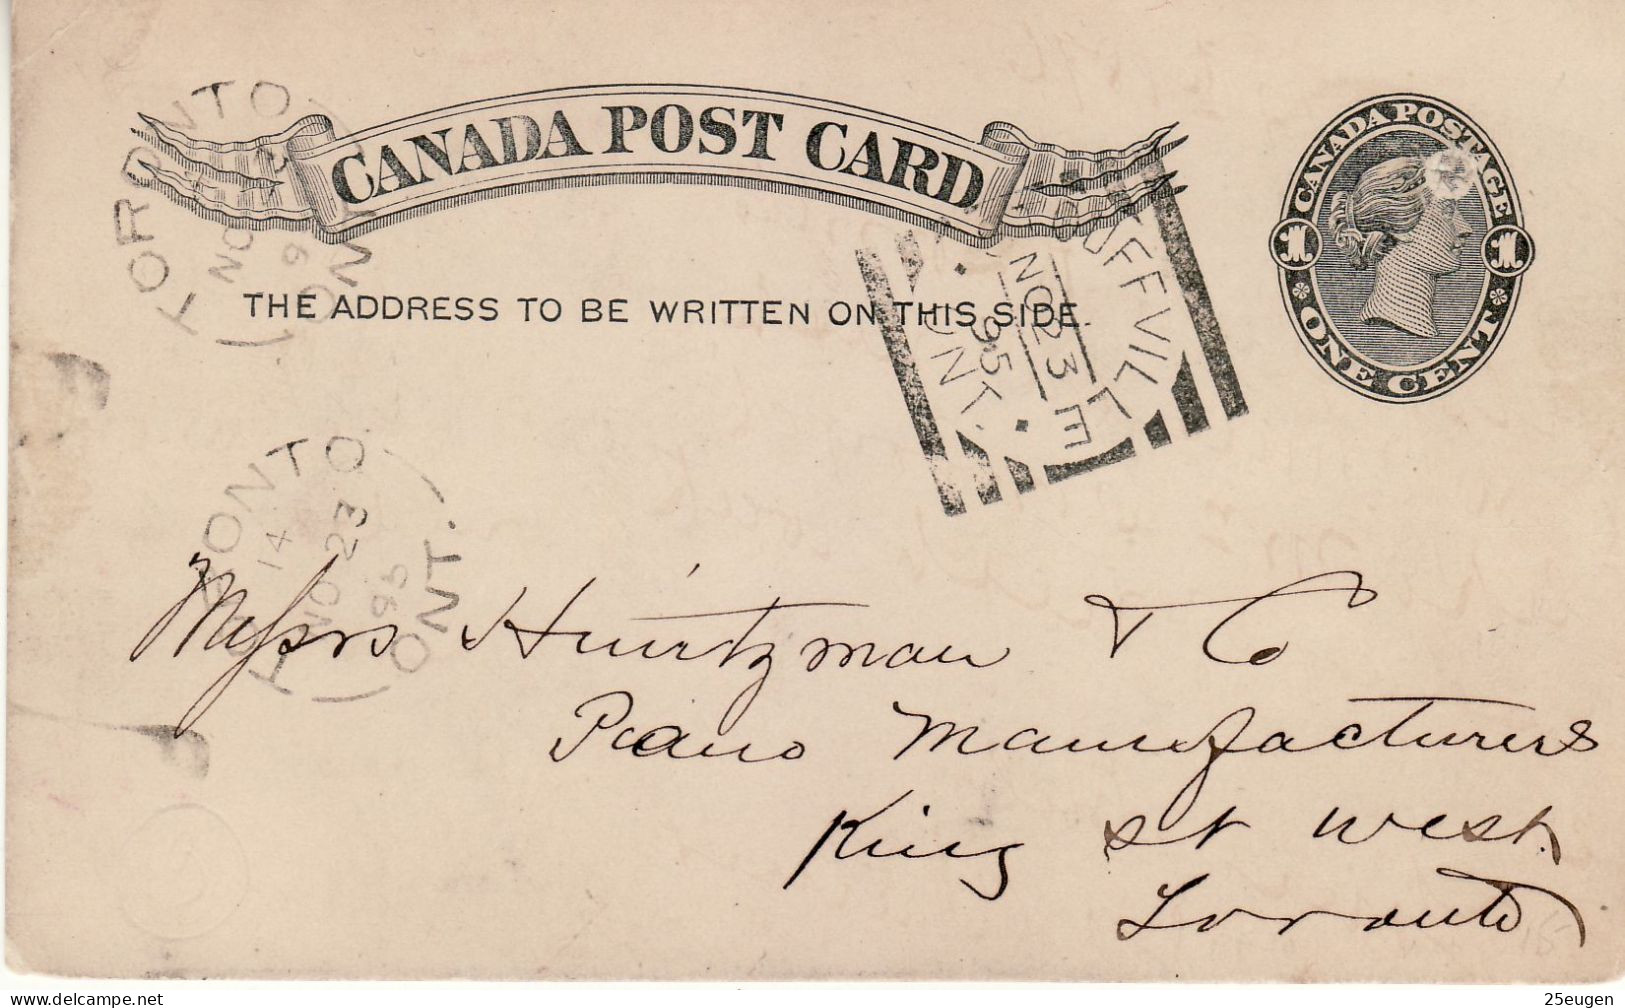 CANADA POST CARD
THE ADDRESS TO BE WRITTEN ON THIS SIDE.
CANADA POSTAGE
1 1
ONE CENT
TORONTO
NO
9
ONT
UFFVILLE
NO 23
95
ONT.
TORONTO
14
NO 23
95
ONT.
Messrs Heintzman & Co
Piano Manufacturers
King st west
Toronto
www.delcampe.net
25eugen